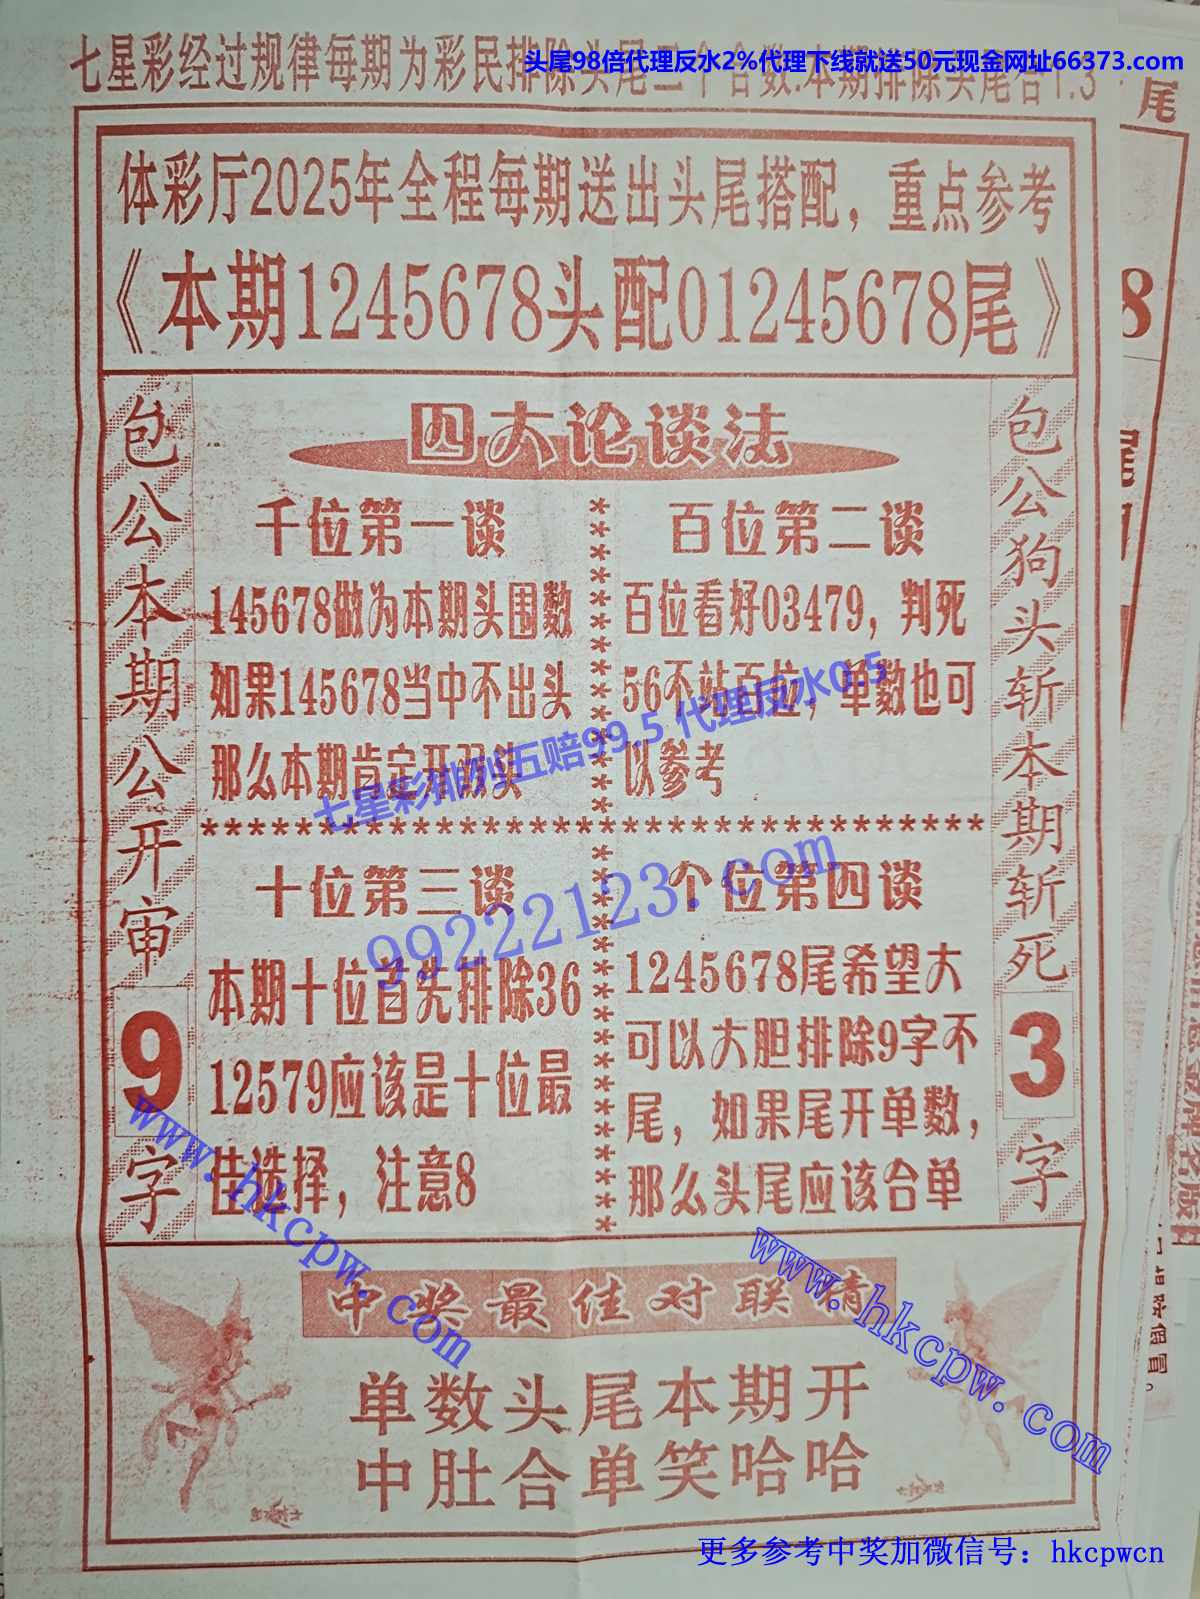 头尾98倍代理反水2%代理下线就送50元现金网址66373.com
七星彩经过规律每期为彩民排除头尾二个合数.本期排除头尾合1.3
尾
体彩厅2025年全程每期送出头尾搭配，重点参考
《本期1245678头配01245678尾》
8
包公本期公开审
9
字
包公狗头斩本期斩死
3
字
四大论谈法
千位第一谈
145678做为本期头围数
如果145678当中不出头
那么本期肯定开双头
百位第二谈
百位看好03479，判死
56不站百位，单数也可
以参考
七星彩排列五赔99.5 代理反水0.5
99222123.com
十位第三谈
本期十位首先排除36
12579应该是十位最
佳选择，注意8
个位第四谈
1245678尾希望大
可以大胆排除9字不
尾，如果尾开单数，
那么头尾应该合单
www.hkcpw.com
www.hkcpw.com
中奖最佳对联猜
单数头尾本期开
中肚合单笑哈哈
更多参考中奖加微信号：hkcpwcn